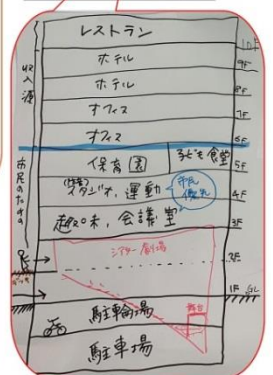 レストラン
10F
ホテル
9F
ホテル
8F
オフィス
7F
オフィス
6F
保育園
子ども食堂
5F
スタジオ、運動
市民優先
4F
趣味、会議室
3F
シアター劇場
2F
1F GL
舞台
駐輪場
駐車場
収入源
市民のための